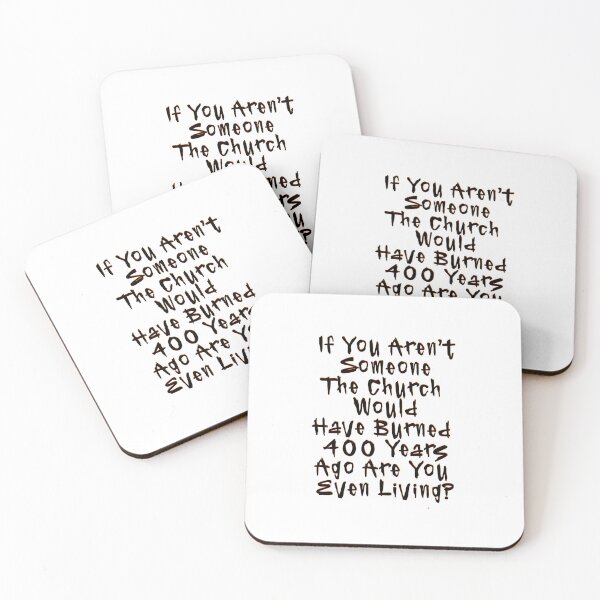 If You Aren't
Someone
The Church
Would
If You Aren't
Someone
The Church
Would
Have Burned
400 Years
Ago Are You
If You Aren't
Someone
The Church
Would
Have Burned
400 Years
Ago Are You
Even Living?
If You Aren't
Someone
The Church
Would
Have Burned
400 Years
Ago Are You
Even Living?